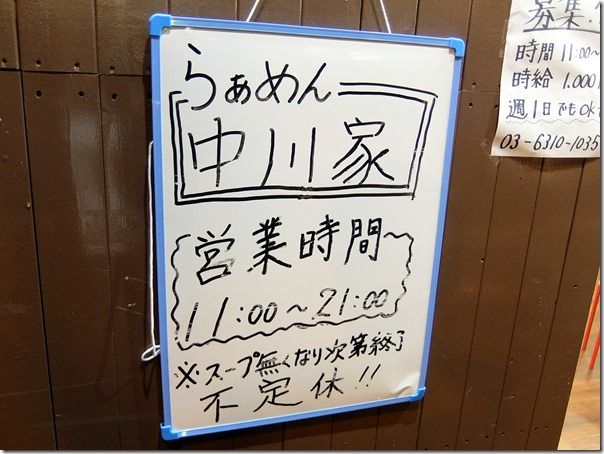 らぁめん
中川家
営業時間
11:00～21:00
※スープ無くなり次第終了
不定休!!
募集
時間 11:00～
時給 1.000
週1日でもOK
03-6310-1035